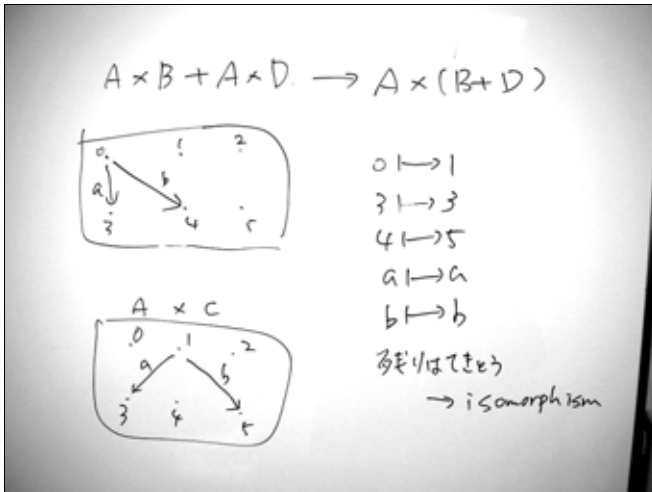 A × B + A × D. → A × (B+D)
0 1 2
a b
3 4 5
A × C
0 1 2
a b
3 4 5
0 ↦ 1
3 ↦ 3
4 ↦ 5
a ↦ a
b ↦ b
残りはてきとう
→ isomorphism